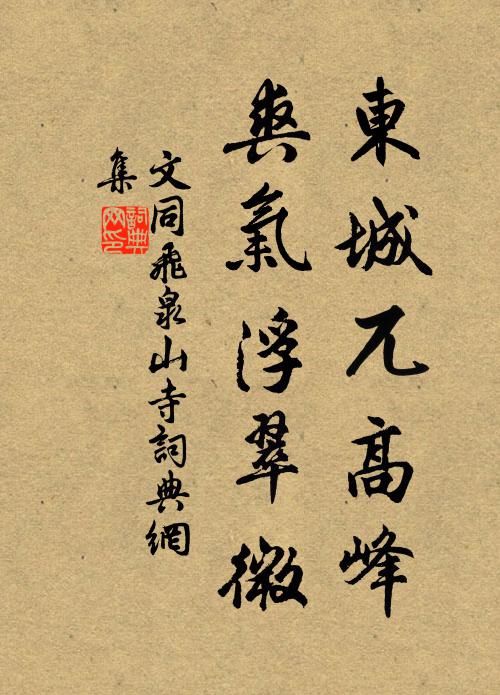 東城兀高峰
爽氣浮翠微
文同飛泉山寺詞典網
集
詞典網印